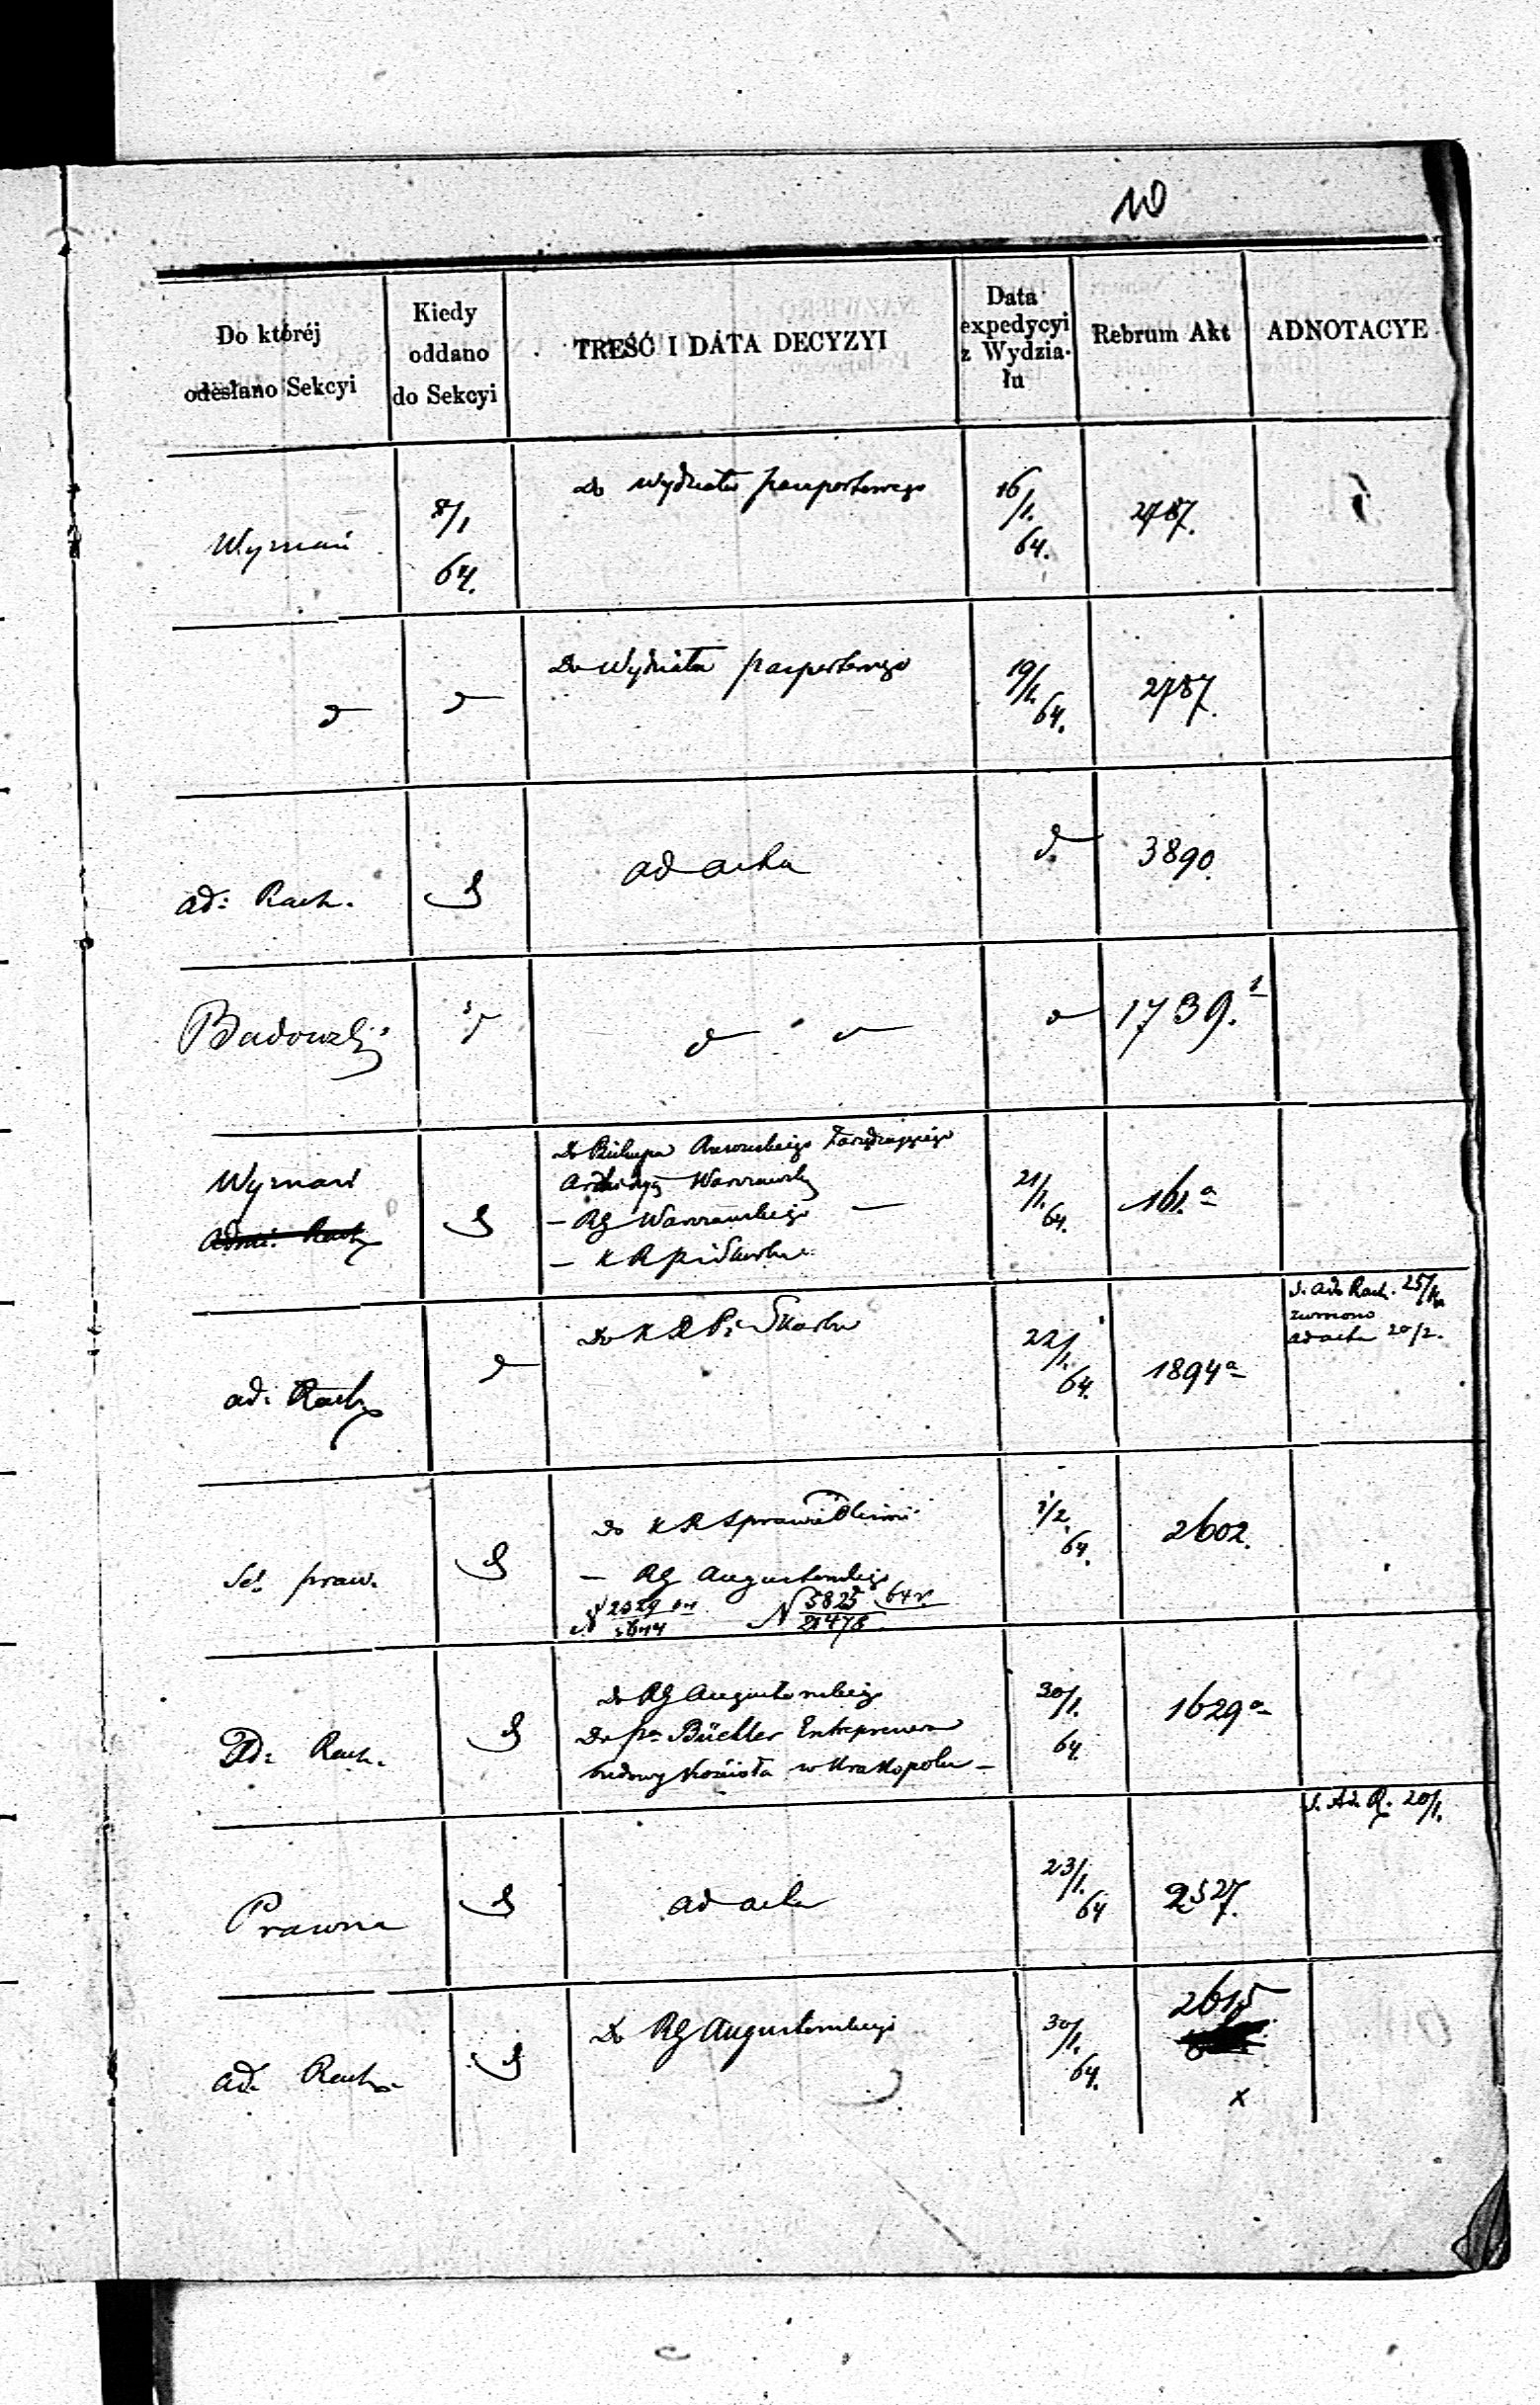 10
Do któréj odesłano Sekcyi
Kiedy oddano do Sekcyi
TREŚĆ I DATA DECYZYI
Data expedycyi z Wydziału
Rebrum Akt
ADNOTACYE
Wyznań
8/1 64.
Do Wydziału paszportowego
16/1. 64.
2787.
d
d
Do Wydziału paszportowego
19/1. 64.
2787.
ad: Rach.
d
ad acta
d.
3890.
Badowski
d d
d
1739.1
Wyznań
d
Do Biskupa Zarządzającego
Warszawską
— RG Warszawskiego —
— K R P i Skarbu
21/1. 64.
161.a
ad: Rach.
d
Do K R P i Skarbu
22/1. 64.
1894a
S. Adm Rach. 25/1
zwrócono
ad acta 20/2.
Sek. praw.
d
Do K R Sprawiedliwości
— RG Augustowskiego
N 2529
N 5825/21478 64 r.
1/2 64.
2602.
Ad: Rach.
d
Do RG Augustowskiego
Do pa Büchler Entreprenera
budowy kościoła w Krakopolu —
30/1. 64.
1629a
Prawna
d
ad acta
23/1. 64
2527.
S. Ad. R. 20/1.
ad. Rach.
d
Do RG Augustowskiego
30/1. 64.
2615
x